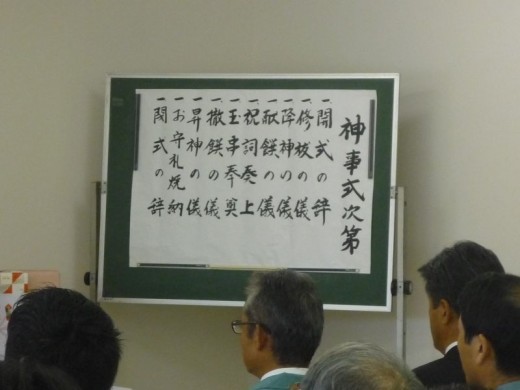 神事式次第
一、開式の辞
一、修祓の儀
一、降神の儀
一、献饌の儀
一、祝詞奏上
一、玉串奉奠
一、撤饌の儀
一、昇神の儀
一、お守札焼納
一、閉式の辞